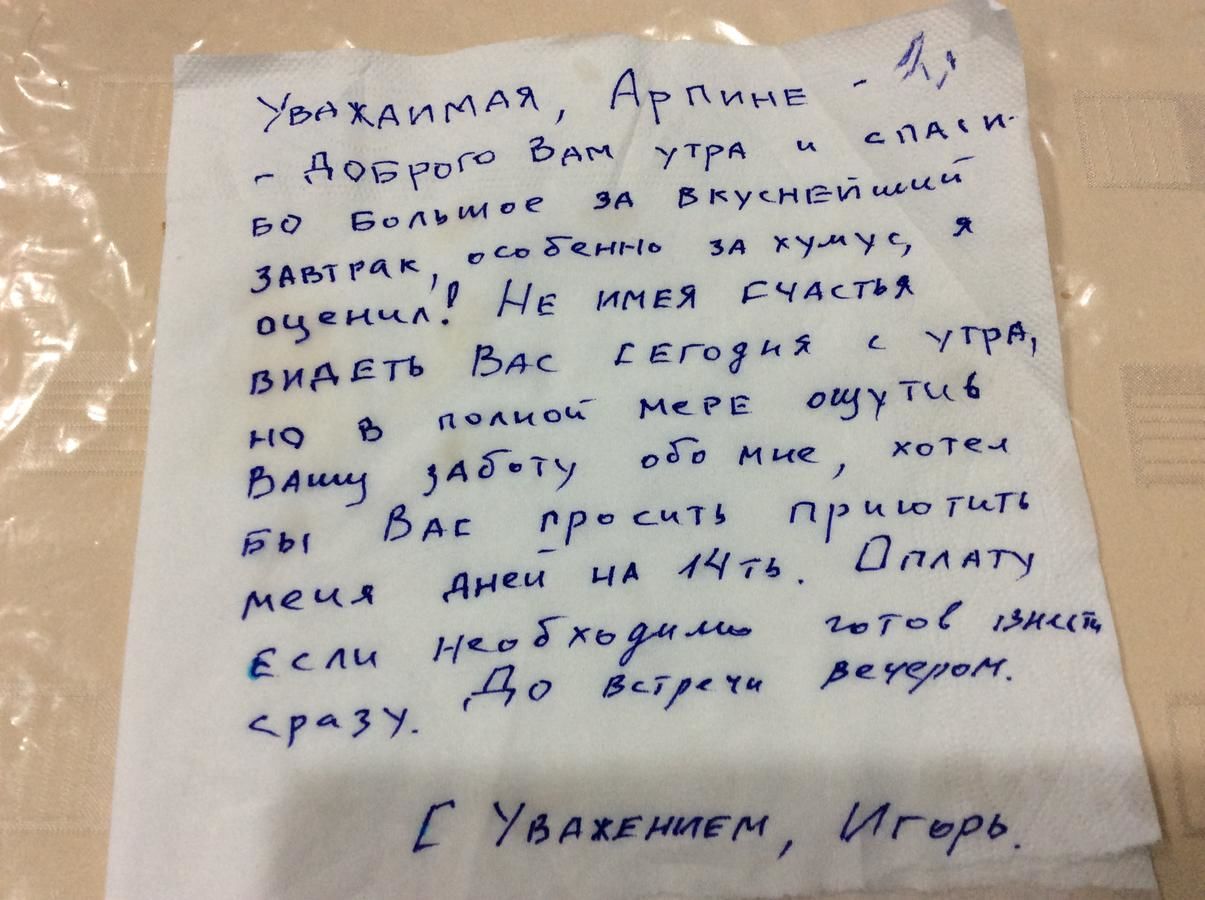 Уважаимая, Арпине -
- Доброго Вам утра и спаси-
бо большое за вкуснейший
завтрак, особенно за хумус, я
оценил! Не имея счастья
видеть Вас сегодня с утра,
но в полной мере ощутив
Вашу заботу обо мне, хотел
бы Вас просить приютить
меня дней на 14ть. Оплату
если необходимо готов внести
сразу. До встречи вечером.
С Уважением, Игорь.